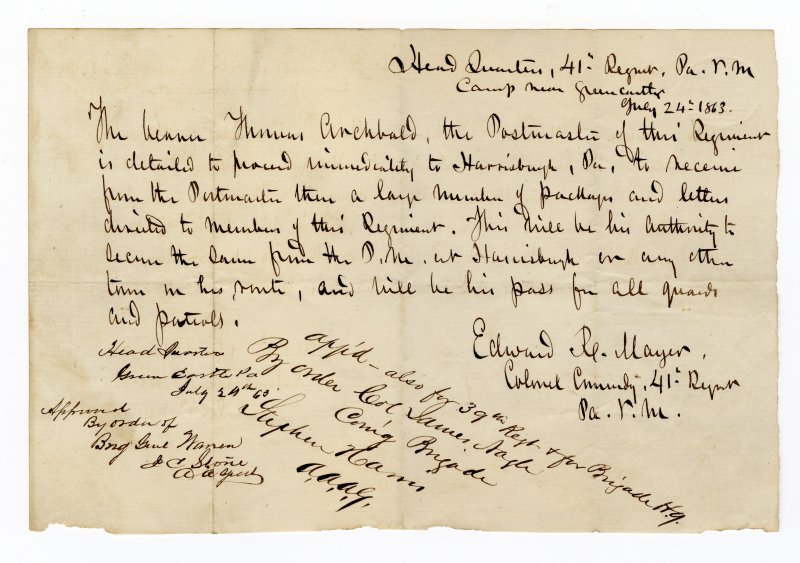 Head Quarters, 41st Regmt. Pa. V. M
Camp near Greencastle
July 24th 1863.
The bearer Thomas Archbald, the Postmaster of this Regiment
is detailed to proceed immediately to Harrisburgh, Pa, to receive
from the Postmaster there a large number of packages and letters
directed to members of this Regiment. This will be his authority to
secure the same from the P.M. at Harrisburgh or any other
town on his route, and will be his pass for all guards
and patrols.
Edward R. Mayer,
Colonel Commdg. 41st Regmt
Pa. V. M.
app'd - also for 39th Regt & for Brigade H.Q.
By order Col James Nagle
Com'g Brigade
Stephen Harris
A.A.A.G.
Head Quarters
Green Castle Pa
July 24th 63
Approved
By order of
Brig Genl Warren